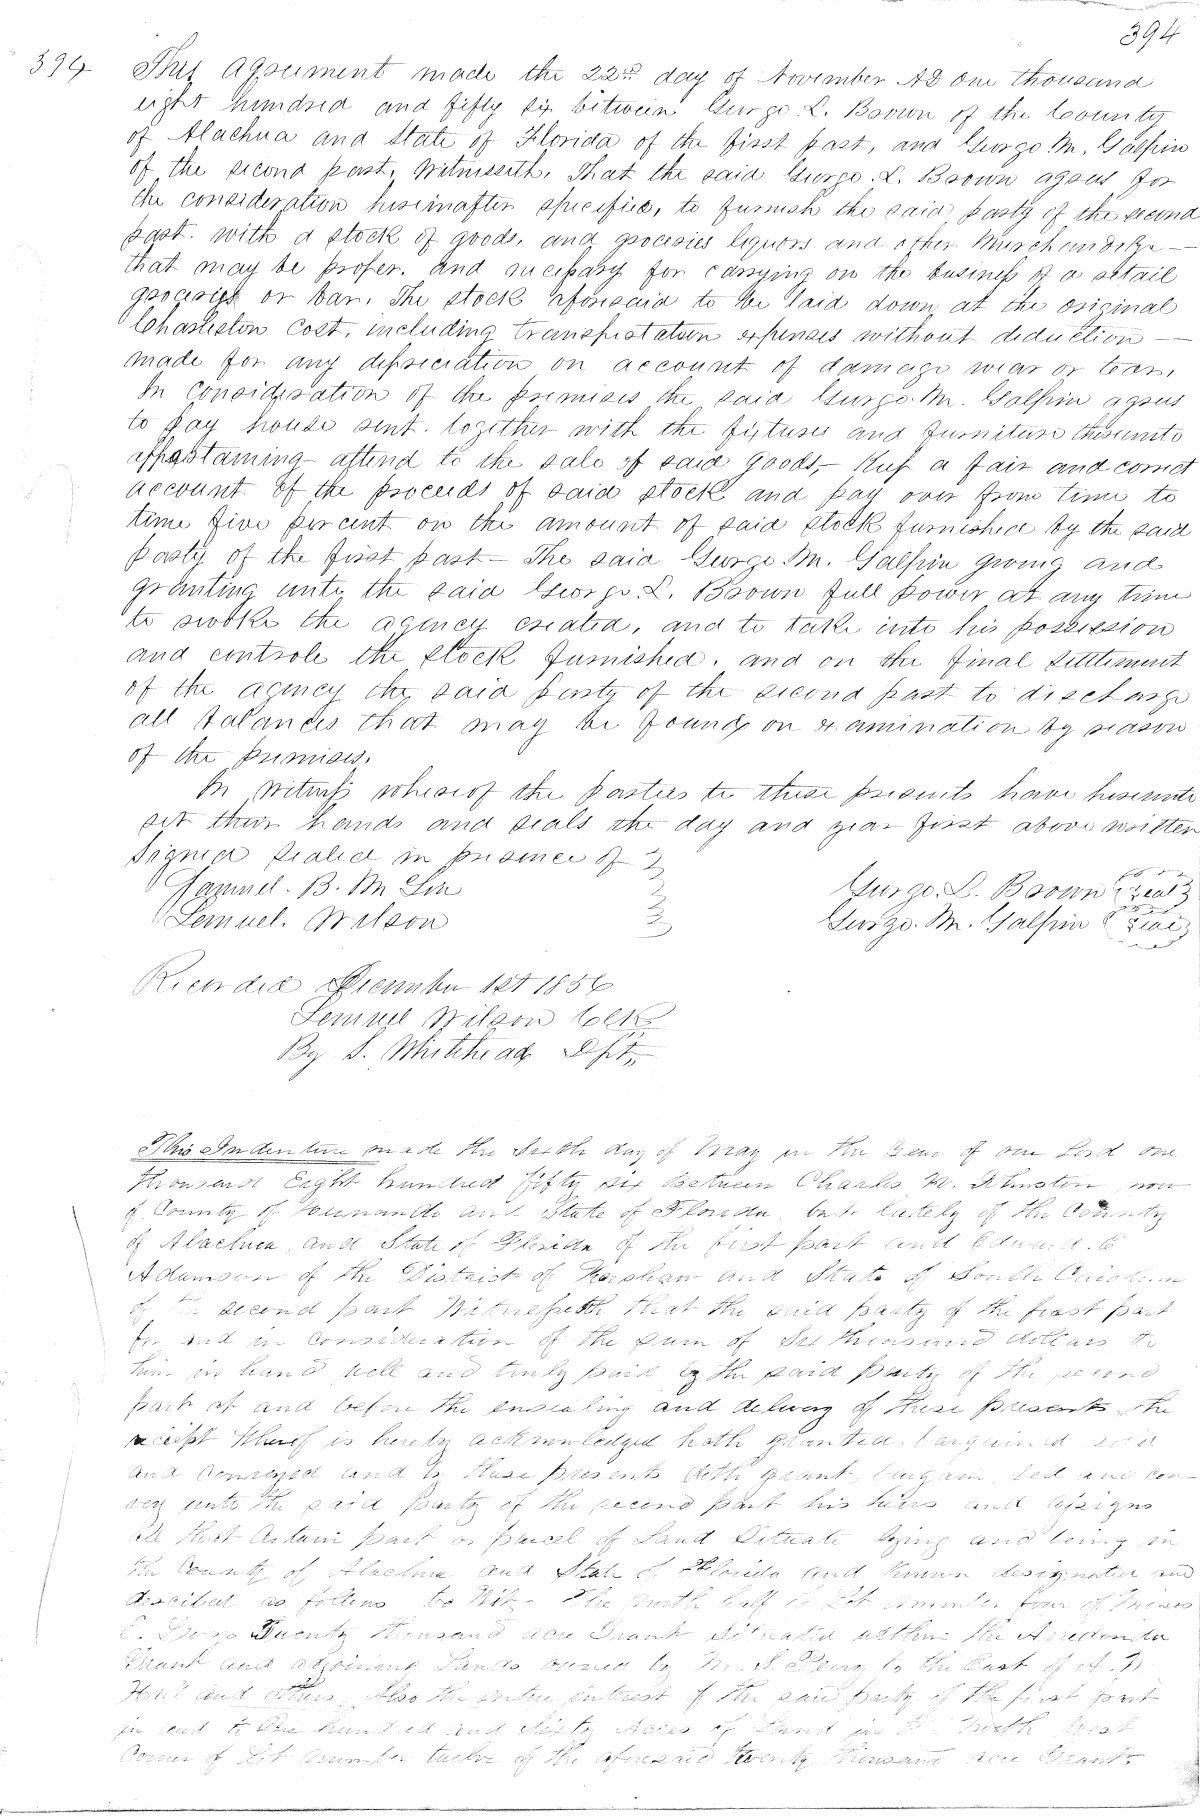 394
394 This agreement made the 22nd day of November AD one thousand
eight hundred and fifty six between George L. Brown of the County
of Alachua and State of Florida of the first part, and George M. Galphin
of the second part, Witnesseth, That the said George L. Brown agrees for
the consideration hereinafter specified, to furnish the said party of the second
part. with a stock of goods, and groceries liquors and other Merchandize —
that may be proper. and necessary for carrying on the business of a retail
grocery or bar. The stock aforesaid to be laid down at the original
Charleston cost, including transportation expenses without deduction —
made for any depreciation on account of damage wear or tear.
In consideration of the premises the said George M. Galphin agrees
to pay house rent. together with the fixtures and furniture thereunto
appertaining – attend to the sale of said goods, – Keep a fair and correct
account of the proceeds of said stock and pay over from time to
time five per cent on the amount of said stock furnished by the said
party of the first part – The said George M. Galphin giving and
granting unto the said George L. Brown full power at any time
to revoke the agency created, and to take into his possession
and controle the stock furnished. and on the final settlement
of the agency the said party of the second part to discharge
all balances that may be found on examination by reason
of the premises.
In Witness whereof the parties to these presents have hereunto
set their hands and seals the day and year first above written
Signed sealed in presence of
Samuel. B. McLin George. L. Brown Seal
Lemuel. Wilson George. M. Galphin Seal
Recorded December 1st 1856
Lemuel Wilson Clk
By S. Whitehead Dpt,,
This Indenture made the Sixth day of May in the Year of our Lord one
thousand Eight hundred fifty six Between Charles N. Johnston now
of County of Hernando and State of Florida, but lately of the County
of Alachua, and State of Florida of the first part and Edward. C
Adamson of the District of Kershaw and State of South Carolina
of the second part Witnesseth that the said party of the first part
for and in consideration of the sum of Six thousand dollars to
him in hand well and truly paid by the said party of the second
part at and before the ensealing and delivery of these presents the
receipt whereof is hereby acknowledged hath granted, bargained sold
and conveyed and by these presents doth grant, bargain, sell and con-
vey unto the said party of the second part his heirs and assigns
all that certain part or parcel of Land Situate lying and being in
the County of Alachua and State of Florida and known designated and
described as follows to Wit – The north half of Lot number four of Moses
E. Levys Twenty thousand acre Grant Situated within the Arredondo
Grant and adjoining Lands owned by M. S. Perry to the East of
and others, Also the entire interest of the said party of the first part
in and to One hundred and Sixty Acres of Land in the North West
Corner of Lot number twelve of the aforesaid twenty thousand acre Grant.